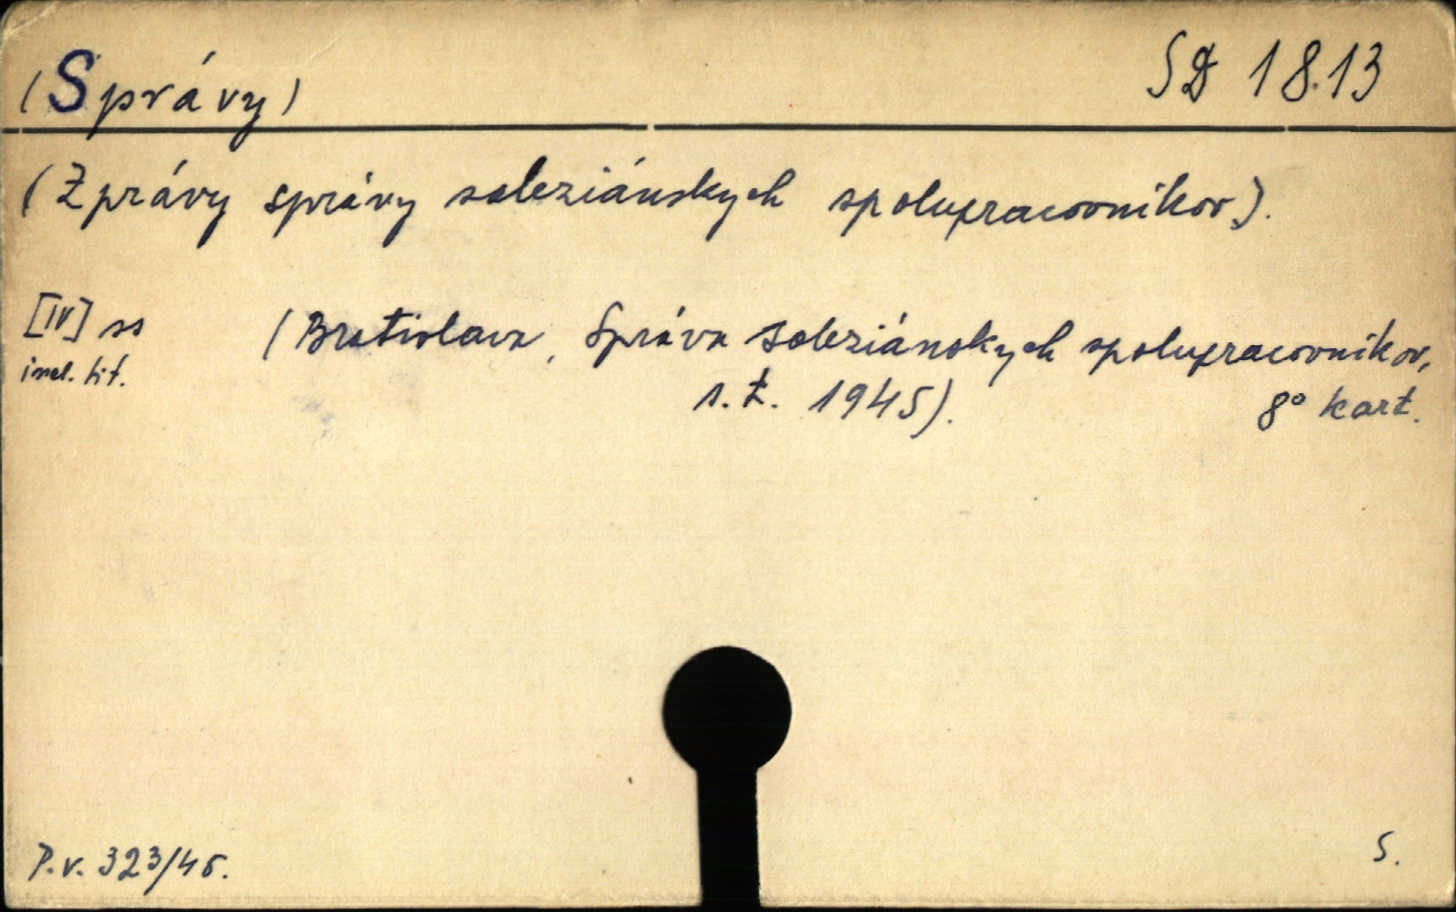 (Správy)
SD 18.13
(Zprávy správy saleziánskych spolupracovníkov).
[IV] ss (Bratislava, Správa saleziánskych spolupracovníkov,
incl. tit.
s. t. 1945). 8° kart.
P.v. 323/46.
S.